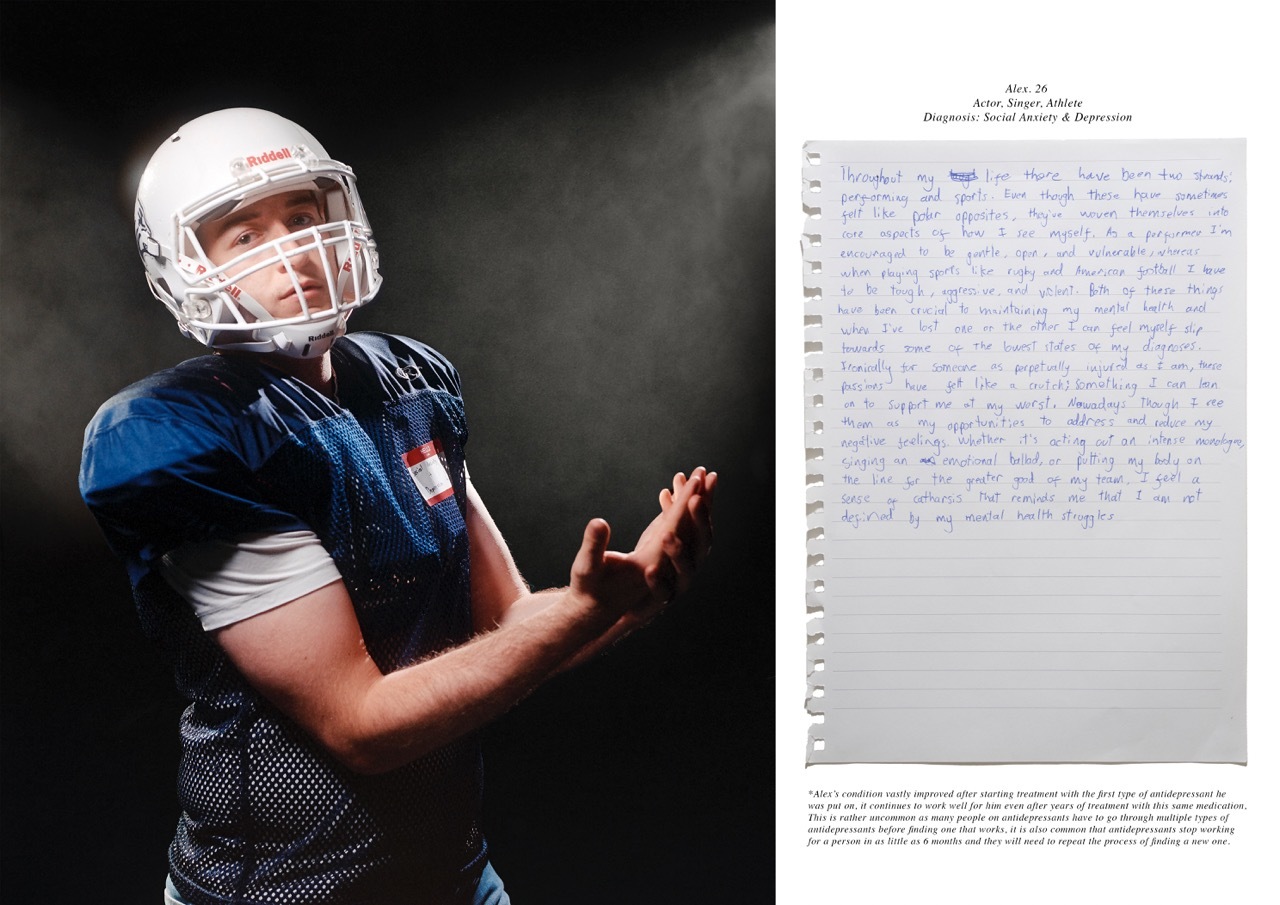 Riddell
Riddell
Alex. 26
Actor, Singer, Athlete
Diagnosis: Social Anxiety & Depression
Throughout my life there have been two strands;
performing and sports. Even though these have sometimes
felt like polar opposites, they've woven themselves into
core aspects of how I see myself. As a performer I'm
encouraged to be gentle, open, and vulnerable, whereas
when playing sports like rugby and American football I have
to be tough, aggressive, and violent. Both of these things
have been crucial to maintaining my mental health and
when I've lost one or the other I can feel myself slip
towards some of the lowest states of my diagnoses.
Ironically for someone as perpetually injured as I am, these
passions have felt like a crutch; something I can lean
on to support me at my worst. Nowadays though I see
them as my opportunities to address and reduce my
negative feelings. Whether it's acting out an intense monologue,
singing an emotional ballad, or putting my body on
the line for the greater good of my team, I feel a
sense of catharsis that reminds me that I am not
defined by my mental health struggles
*Alex's condition vastly improved after starting treatment with the first type of antidepressant he
was put on, it continues to work well for him even after years of treatment with this same medication.
This is rather uncommon as many people on antidepressants have to go through multiple types of
antidepressants before finding one that works, it is also common that antidepressants stop working
for a person in as little as 6 months and they will need to repeat the process of finding a new one.